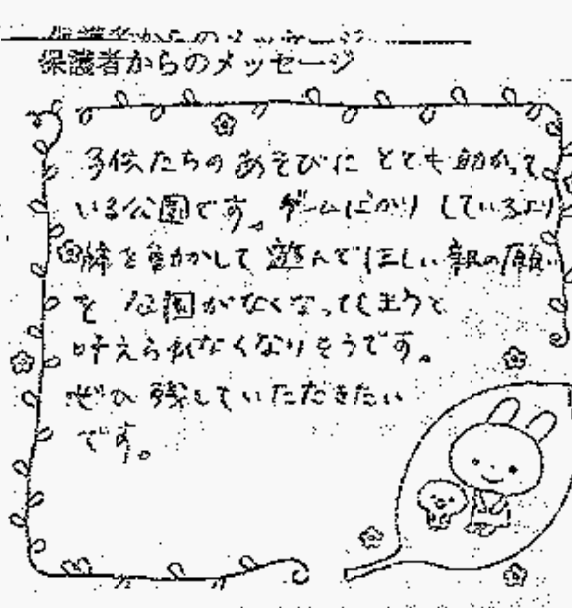 保護者からのメッセージ
子供たちの あそびに とても 助かって
いる公園です。ゲームばかり しているより
体を動かして 遊んでほしい 親の願い
を 公園がなくなってしまうと
叶えられなくなりそうです。
ぜひ 残していただきたい
です。